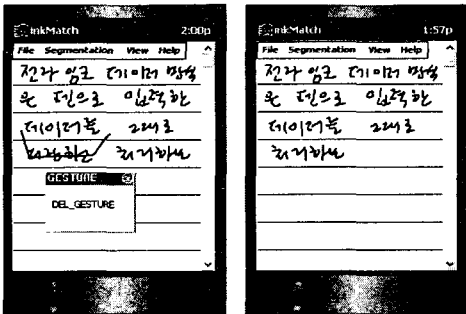 InkMatch 2:00p
File Segmentation View Help
전자 잉크 데이터 방식
은 펜으로 입력한
데이터를 그대로
GESTURE
DEL_GESTURE
InkMatch 1:57p
File Segmentation View Help
전자 잉크 데이터 방식
은 펜으로 입력한
데이터를 그대로